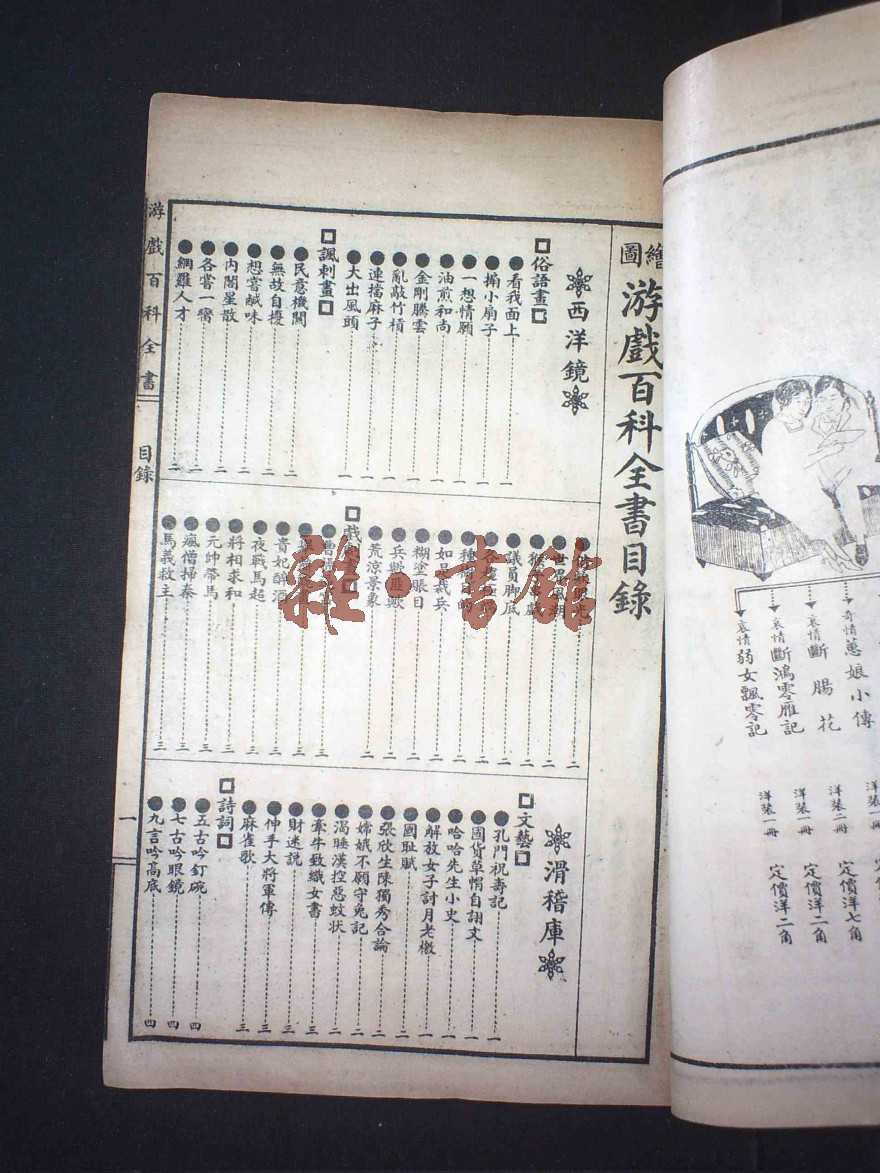 繪圖游戲百科全書目錄
西洋鏡
俗語畫
看我面上 一
搧小扇子 一
一想情願 一
油煎和尚 一
金剛騰雲 一
亂敲竹槓 一
連擋麻子 一
大出風頭 一
諷刺畫
民意機關 一
無故自擾 一
想嘗鹹味 二
內閣星散 二
各嘗一臠 二
網羅人才 二
議員脚底 二
如是裁兵 二
糊塗賬目 二
兵歟匪歟 二
荒涼景象 二
貴妃醉酒 三
夜戰馬超 三
將相求和 三
元帥帶馬 三
瘋僧掃秦 三
馬義救主 三
滑稽庫
文藝
孔門祝壽記 一
國貨草帽自詡文 一
哈哈先生小史 一
解放女子討月老檄 一
國恥賦 二
張欣生陳獨秀合論 二
嫦娥不願守兔記 二
渴睡漢控惡蚊狀 二
牽牛致織女書 三
財迷說 三
伸手大將軍傳 三
麻雀歌 三
詩詞
五古吟釘碗 四
七古吟眼鏡 四
九言吟高底 四
游戲百科全書
目錄
一
奇情蕙娘小傳
哀情斷腸花 洋裝二冊 定價洋七角
哀情斷鴻零雁記 洋裝一冊 定價洋二角
哀情弱女飄零記 洋裝一冊 定價洋二角
雜·書館